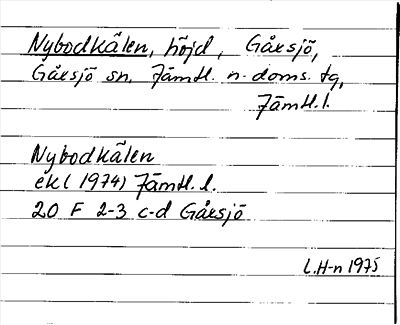 Nybodkälen, höjd, Gåxsjö,
Gåxsjö sn. Jämtl. n. doms. tg,
Jämtl. l.
Nybodkälen
ek (1974) Jämtl. l.
20 F 2-3 c-d Gåxsjö
L.H-n 1975